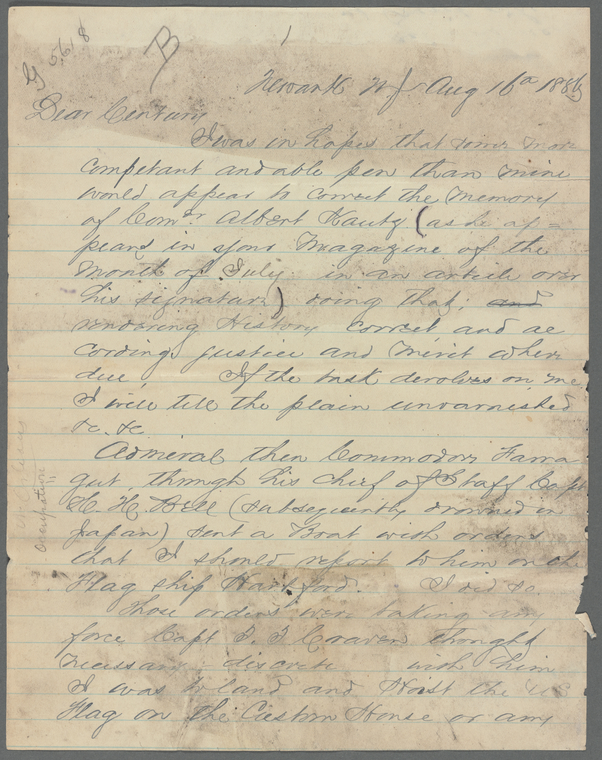 1
B
G 5618
Newark N J Aug 16th 188
Dear Century
I was in hopes that some more
competant and able pen than mine
would appear to correct the memory
of Comdr Albert Kautz (as he ap=
pears in your Magazine of the
Month of July in an article over
his signature) doing that, and
rendering History correct, and ac
cording justice and merit where
due, If the task devolves on me,
I will tell the plain unvarnished
&c. &c.
Admiral then Commodore Farra
gut, through his chief of Staff Capt
H. H. Bell (subsequently drowned in
Japan) sent a Boat with orders
that I should report to him on the
Flag ship Hartford. I did so.
Those orders were taking any
force Capt T. T. Craven thought
necessary discrete with him
I was to land and Hoist the US
Flag on the Custom House or any
Occupation